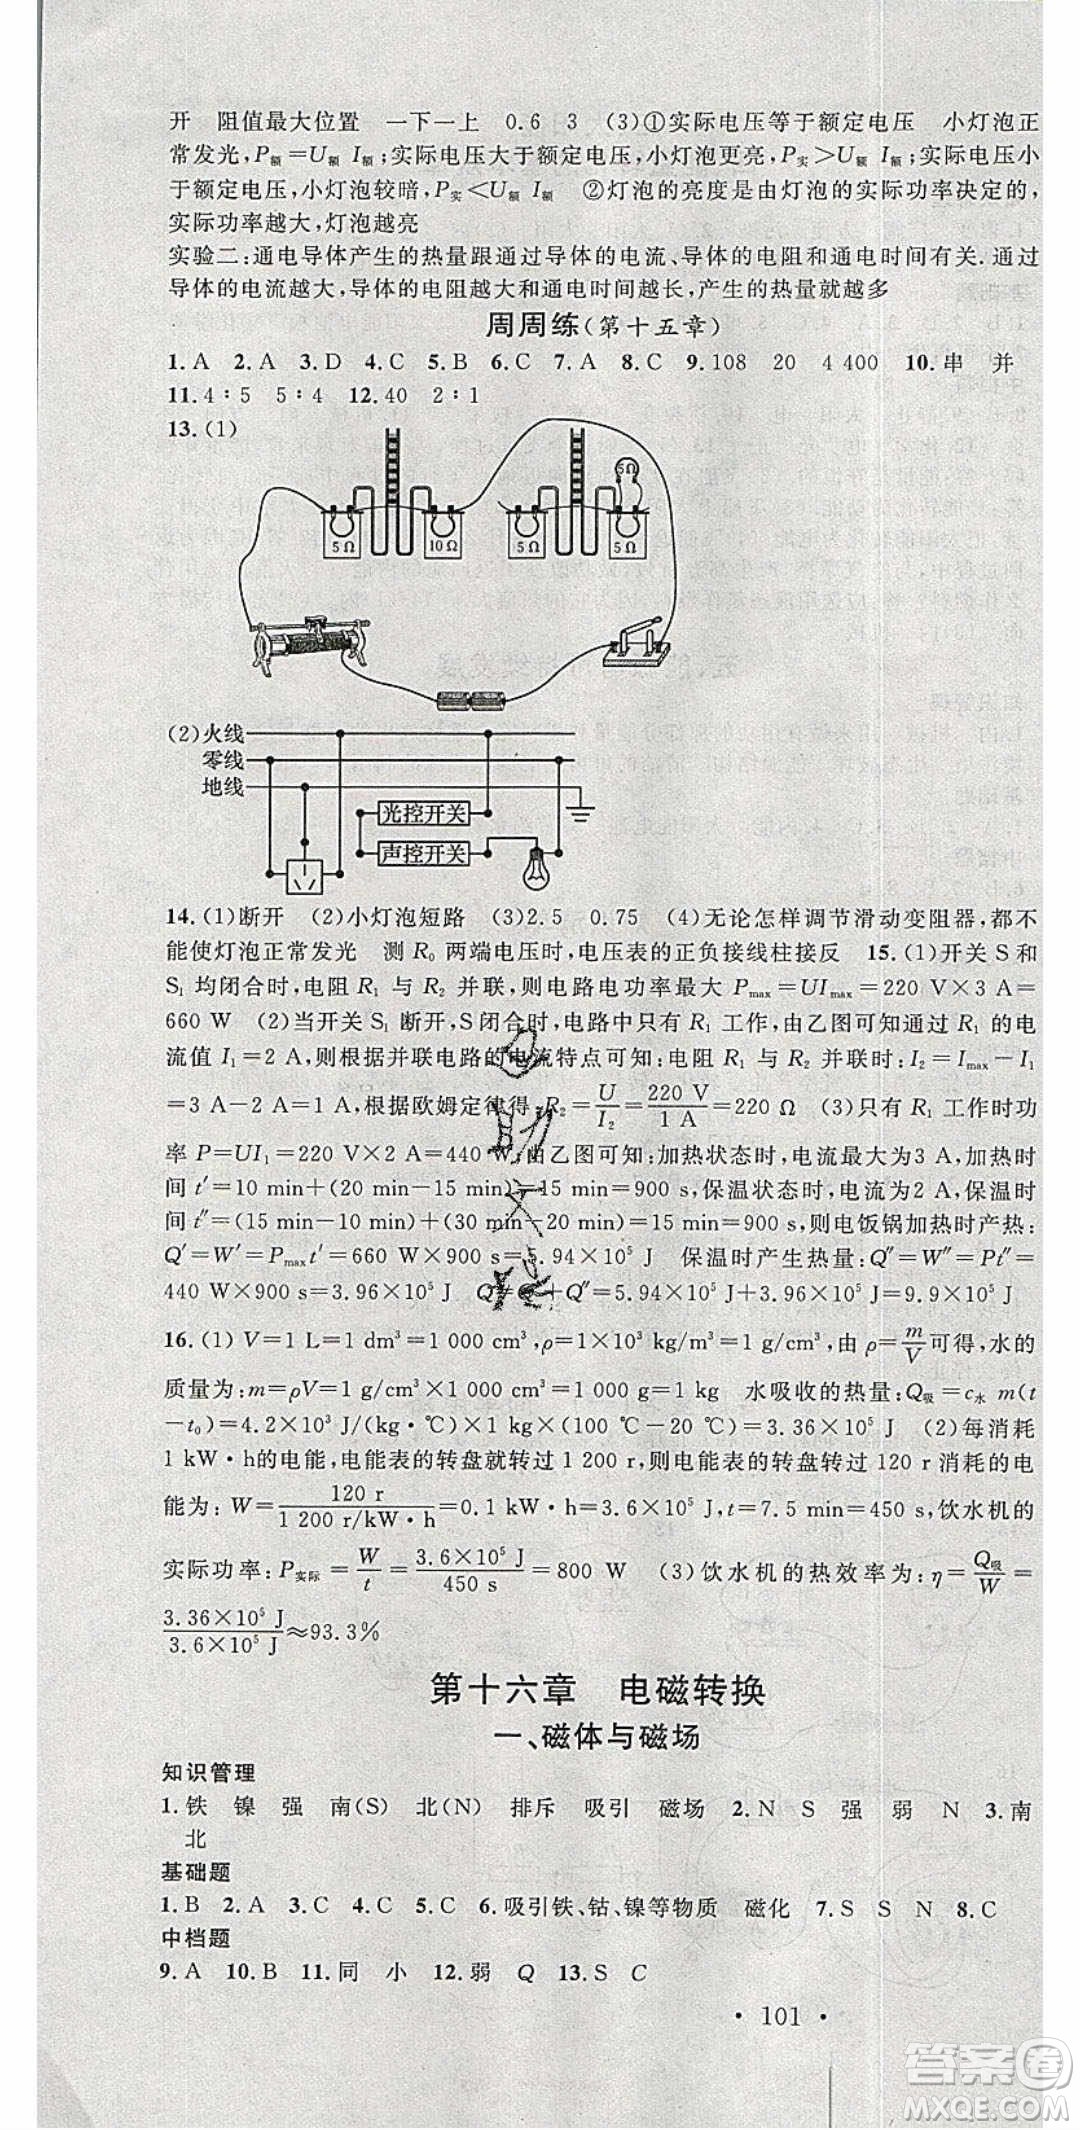 开　阻值最大位置　一下一上　0.6　3　(3)①实际电压等于额定电压　小灯泡正
常发光,P额=U额 I额;实际电压大于额定电压,小灯泡更亮,P实>U额 I额;实际电压小
于额定电压,小灯泡较暗,P实<U额 I额　②灯泡的亮度是由灯泡的实际功率决定的,
实际功率越大,灯泡越亮
实验二:通电导体产生的热量跟通过导体的电流、导体的电阻和通电时间有关.通过
导体的电流越大,导体的电阻越大和通电时间越长,产生的热量就越多
周周练(第十五章)
1.A　2.A　3.D　4.C　5.B　6.C　7.A　8.C　9.108　20　4 400　10.串　并
11.4∶5　5∶4　12.40　2∶1
13.(1)
5Ω
5Ω　10Ω　5Ω　5Ω
(2)火线
零线
地线
光控开关
声控开关
14.(1)断开　(2)小灯泡短路　(3)2.5　0.75　(4)无论怎样调节滑动变阻器,都不
能使灯泡正常发光　测 R₀ 两端电压时,电压表的正负接线柱接反　15.(1)开关 S 和
S₁ 均闭合时,电阻 R₁ 与 R₂ 并联,则电路电功率最大 Pmax=UImax=220 V×3 A=
660 W　(2)当开关 S₁ 断开,S 闭合时,电路中只有 R₁ 工作,由乙图可知通过 R₁ 的电
流值 I₁=2 A,则根据并联电路的电流特点可知:电阻 R₁ 与 R₂ 并联时:I₂=Imax-I₁
=3 A-2 A=1 A,根据欧姆定律得:R₂=U/I₂=220 V/1 A=220 Ω　(3)只有 R₁ 工作时功
率 P=UI₁=220 V×2 A=440 W,由乙图可知:加热状态时,电流最大为3 A,加热时
间 t′=10 min+(20 min-15 min)=15 min=900 s,保温状态时,电流为2 A,保温时
间 t″=(15 min-10 min)+(30 min-20 min)=15 min=900 s,则电饭锅加热时产热:
Q′=W′=Pmaxt′=660 W×900 s=5.94×10⁵ J　保温时产生热量:Q″=W″=Pt″=
440 W×900 s=3.96×10⁵ J　Q=Q′+Q″=5.94×10⁵ J+3.96×10⁵ J=9.9×10⁵ J
16.(1) V=1 L=1 dm³=1 000 cm³,ρ=1×10³ kg/m³=1 g/cm³,由 ρ=m/V可得,水的
质量为:m=ρV=1 g/cm³×1 000 cm³=1 000 g=1 kg　水吸收的热量:Q吸=c水 m(t
-t₀)=4.2×10³ J/(kg·℃)×1 kg×(100 ℃-20 ℃)=3.36×10⁵ J　(2)每消耗
1 kW·h的电能,电能表的转盘就转过 1 200 r,则电能表的转盘转过 120 r 消耗的电
能为:W=120 r/1 200 r/kW·h=0.1 kW·h=3.6×10⁵ J,t=7.5 min=450 s,饮水机的
实际功率:P实际=W/t=3.6×10⁵ J/450 s=800 W　(3)饮水机的热效率为:η=Q吸/W=
3.36×10⁵ J/3.6×10⁵ J≈93.3%
第十六章　电磁转换
一、磁体与磁场
知识管理
1.铁　镍　强　南(S)　北(N)　排斥　吸引　磁场　2.N　S　强　弱　N　3.南
北
基础题
1.B　2.A　3.C　4.C　5.C　6.吸引铁、钴、镍等物质　磁化　7.S　S　N　8.C
中档题
9.A　10.B　11.同　小　12.弱　Q　13.S　C
· 101 ·
答案圈
MXQE.COM